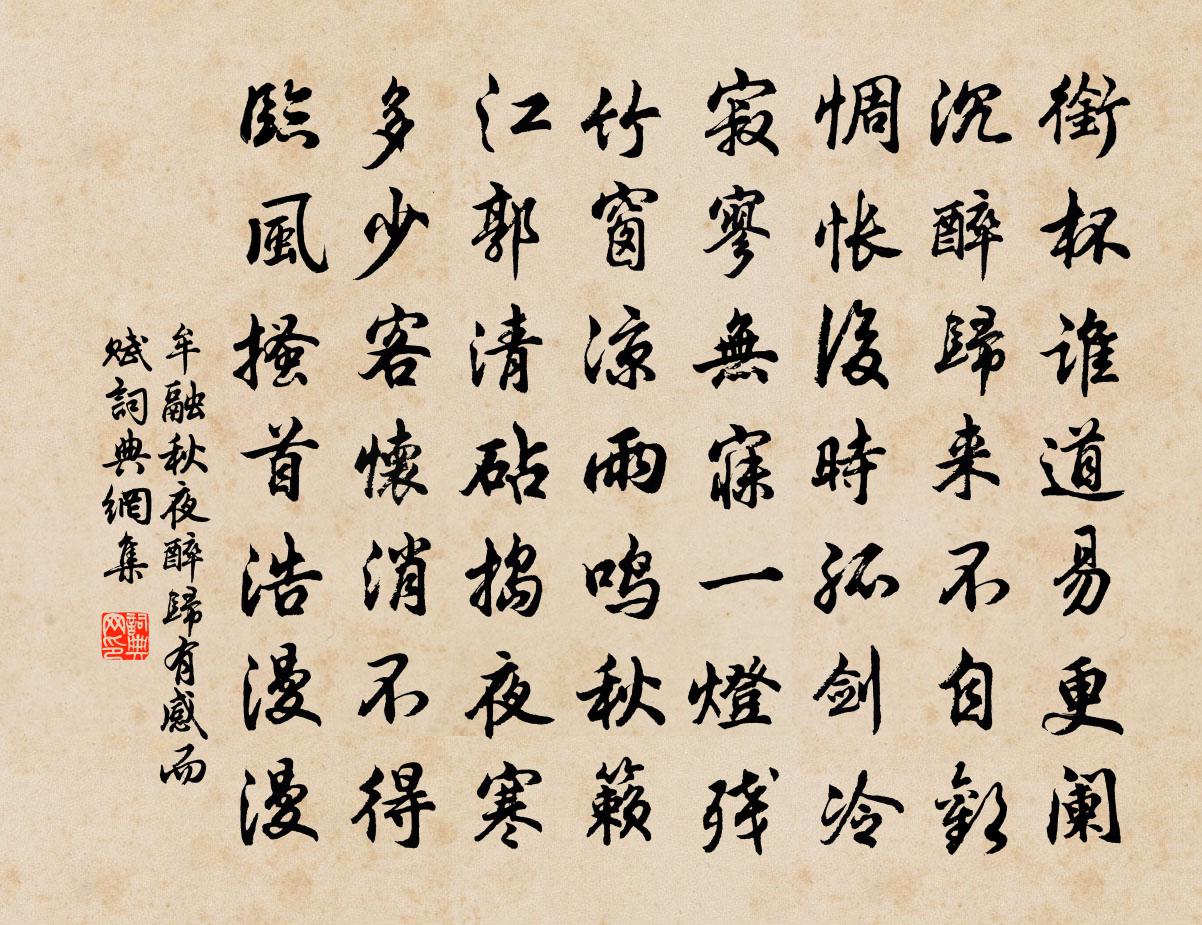 銜杯誰道易更闌
沉醉歸来不自歡
惆怅後時孤剑冷
寂寥無寐一燈残
竹窗凉雨鸣秋籟
江郭清砧捣夜寒
多少客懷消不得
臨風搔首浩漫漫
牟融秋夜醉歸有感而
赋詞典網集
詞典网印